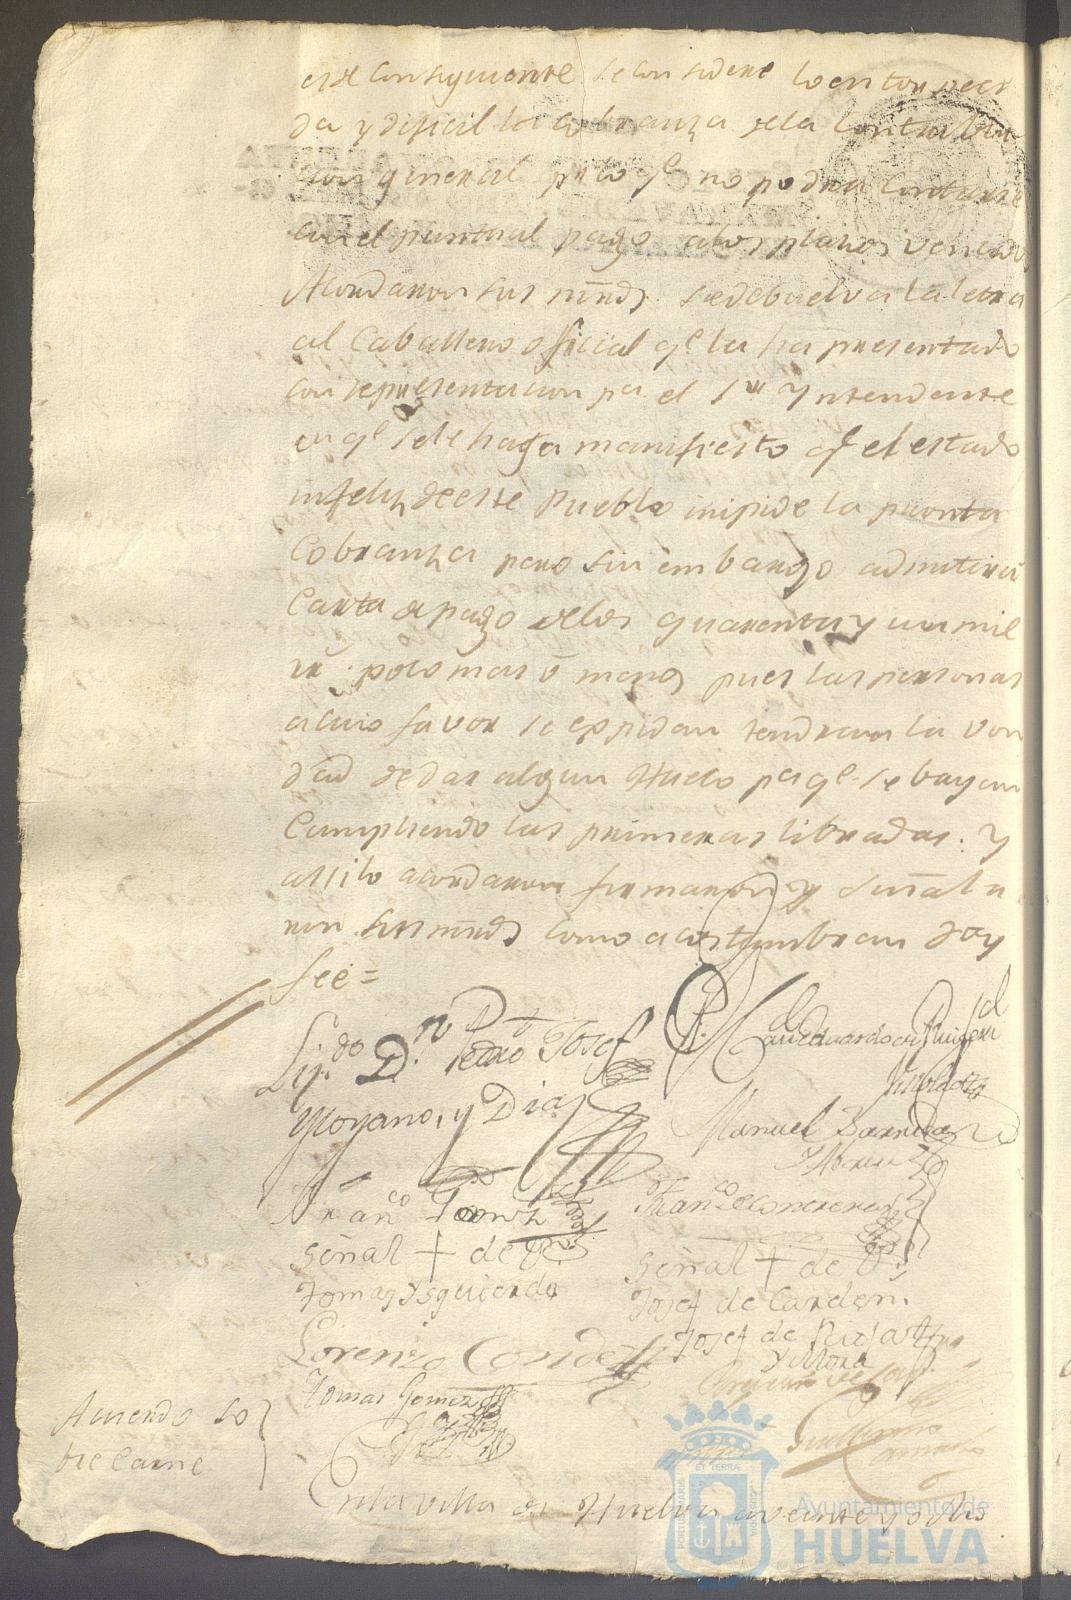 es el consiguiente se considere lo entorpeci
da y dificil la cobranza dela Contribu
cion general pr lo qe no podra contarse
con el puntual pago a los plazos vencidos
Acordaron sus mrds. se debuelva la letra
al Caballero oficial qe la ha presentado
con representacion pa el Sr Yntendente
en qe se le haga manifiesto qe el estado
infeliz de este Pueblo impide la pronta
Cobranza pero sin embargo admitirá
Carta de pago delos quarenta y un mil
rs poco mas ò menos pues las personas
a cuio favor se expidan tendran la von
dad de dar algun hueco pa qe se bayan
Cumpliendo las primeras libradas. Y
assi lo acordaron firmaron y señala
ron sus mrds como acostumbran doy
feè =
Lizdo Dn Pedro Josef
Moyano, y Diaz
Manuel Barreda
y Abreu
Franco
Franco de Contreras
Señal + de
Tomas Ysquierdo
Señal + de
Josef de Carden
Lorenzo Conde
Josef de
y Mora
Tomas Gomez
Guillermo
Acuerdo so
bre Carne
En la villa de Huelva a veinte y ocho
ET TERRAE
Ayuntamiento de
HUELVA